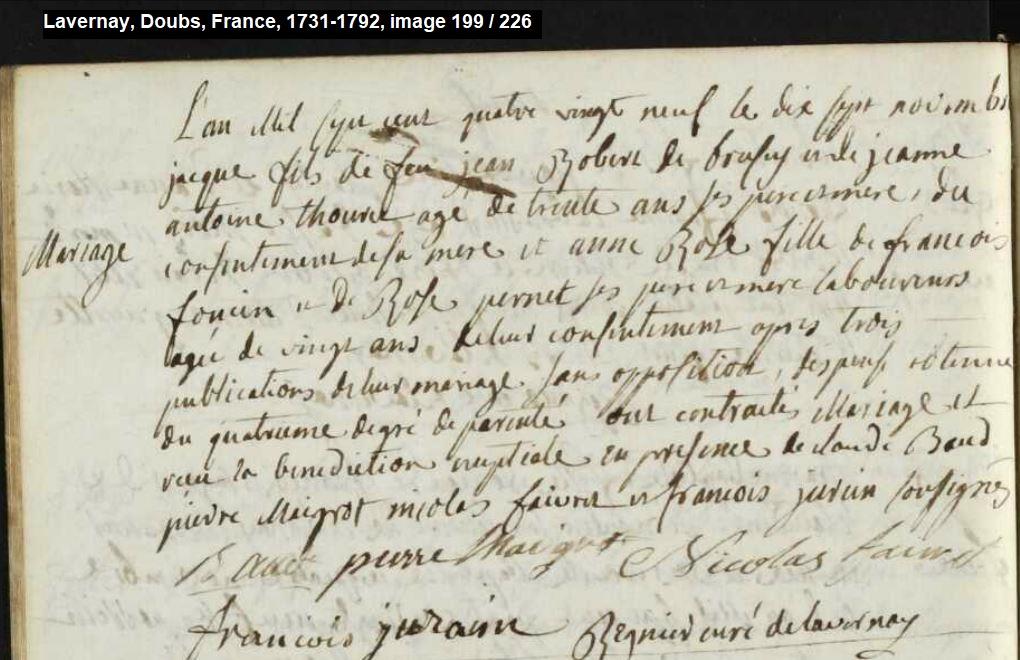 Lavernay, Doubs, France, 1731-1792, image 199 / 226
L'an Mil sept cent quatre vingt neuf le dix sept novembre
jacque fils de feu jean Robert de et de jeanne
antoine agé de trente ans ses pere et mere, du
Mariage
consentement de sa mere et anne Rose fille de francois
foncin et de Rose pernet ses pere et mere laboureurs
agée de vingt ans de leur consentement apres trois
publications de leur mariage sans opposition, dispense obtenue
du quatrieme degré de parenté ont contracté Mariage et
recu la benediction nuptiale en presence de claude Baud
pierre Maigrot nicolas faivret et francois jurain soussignés
pierre Maigrot Nicolas faivret
francois jurain Regnier curé de lavernay